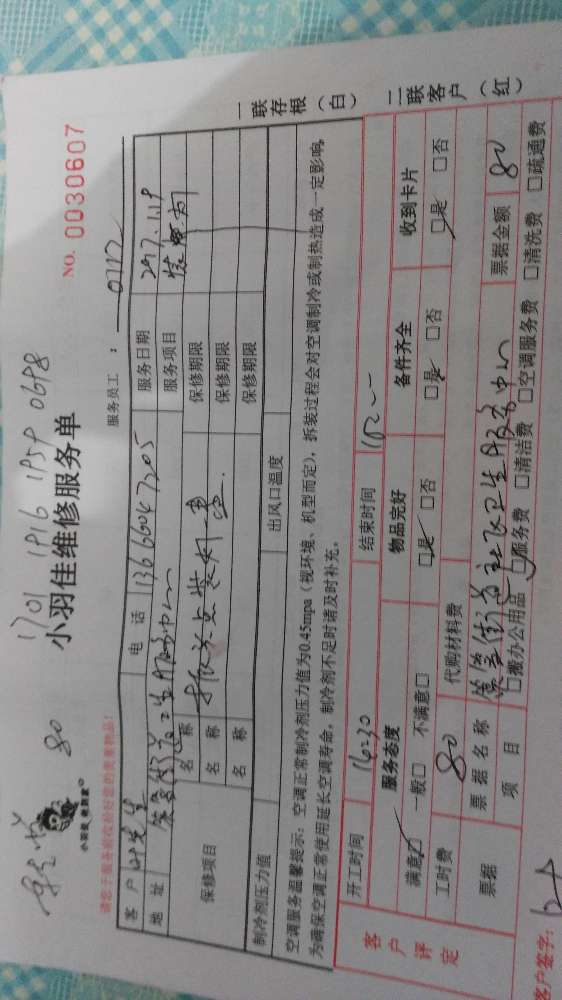 1701 1916 1959 0698
80
小羽佳维修服务单
NO. 0030607
小羽佳·您的家政
服务员工:
客户 叶先生 电话 13666047205 服务日期 2017.11.19
地址 服务项目
保修项目 名称 保修期限
名称 保修期限
名称 保修期限
制冷剂压力值 出风口温度
空调服务温馨提示:空调正常制冷剂压力值为0.45mpa(视环境、机型而定),拆装过程会对空调制冷或制热造成一定影响,
为确保空调正常使用延长空调寿命,制冷剂不足时请及时补充。
一联存根(白) 二联客户(红)
客户评定
开工时间 16:30 结束时间
服务态度 物品完好 备件齐全 收到卡片
满意□ 一般□ 不满意□ □是 □否 □是 □否 □是 □否
工时费 80 代购材料费
票据 票据名称 街道社区卫生服务中心 票据金额 80
项目 □搬办公用品 □服务费 □清洁费 □空调服务费 □清洗费 □疏通费
客户签字: